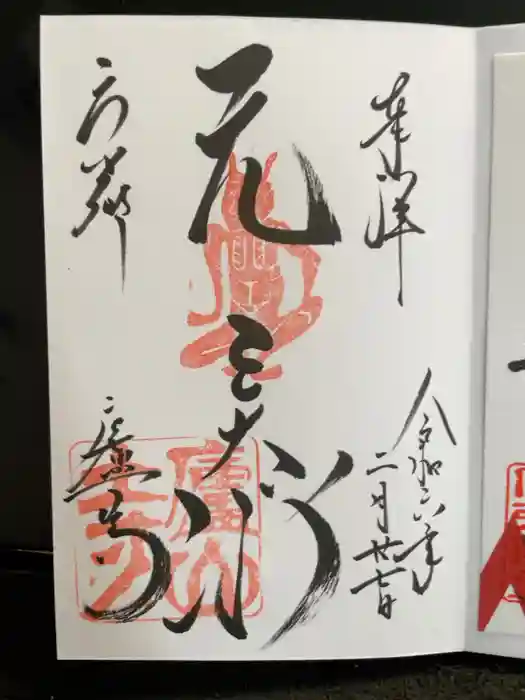 奉拝
令和六年
二月廿七日
元三大師
京都
廬山寺